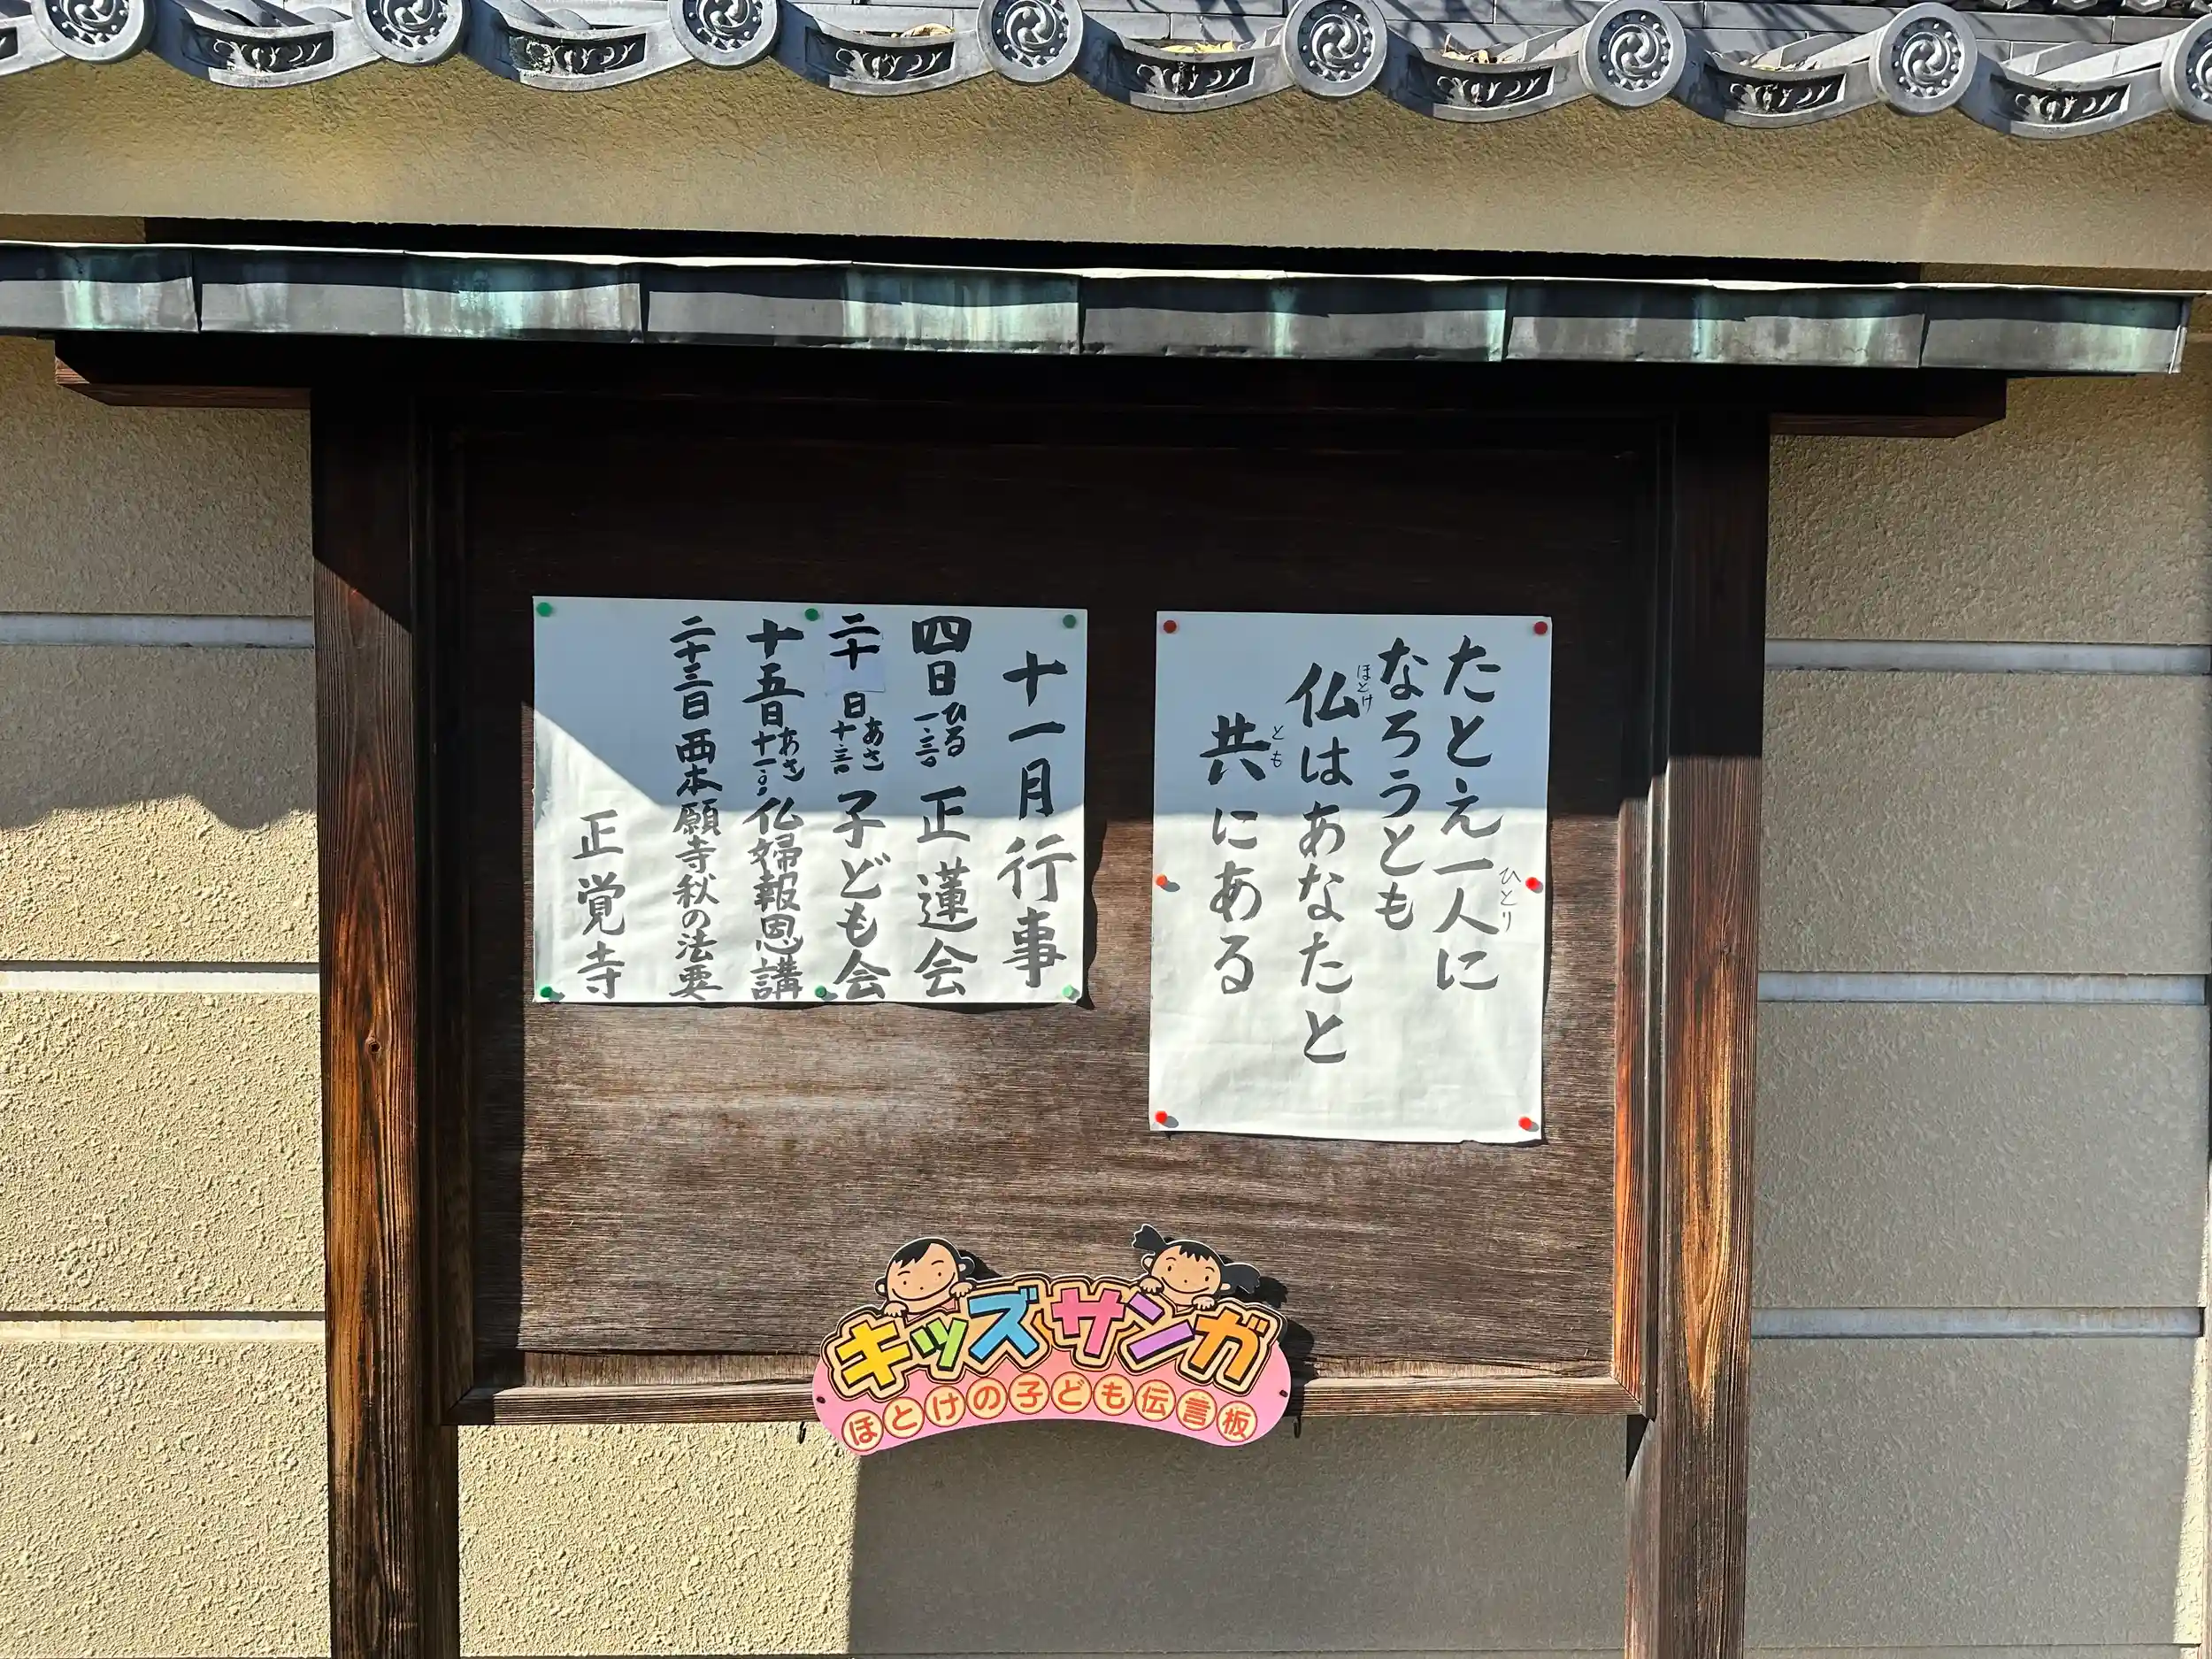 たとえ一人に
ひとり
なろうとも
仏はあなたと
ほとけ
共にある
とも
十一月行事
四日 ひる 一・三〇 正蓮会
二十日 あさ 十・三〇 子ども会
十五日 あさ 十一・〇〇 仏婦報恩講
二十三日 西本願寺秋の法要
正覚寺
キッズサンガ
ほとけの子ども伝言板